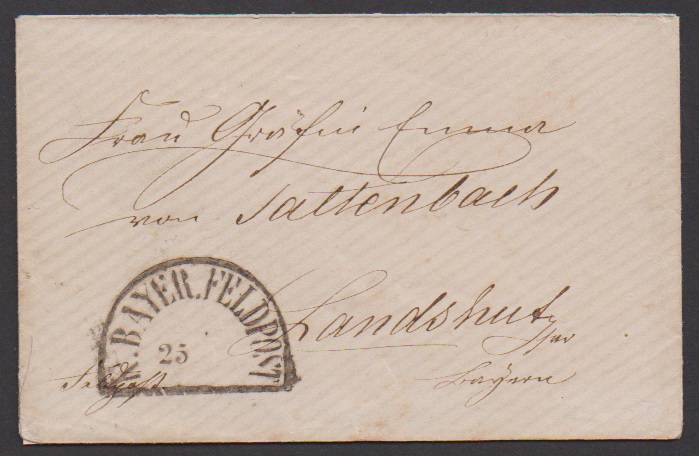 Frau Gräfin Emma
von Tattenbach
Landshut
Bayern
K. BAYER. FELDPOST
25
Feldpost